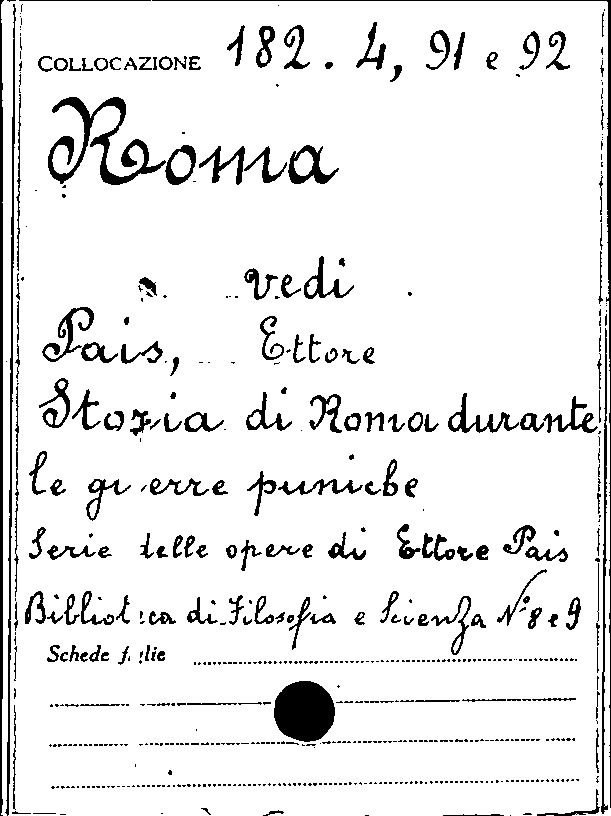 COLLOCAZIONE 182. 4, 91 e 92
Roma
vedi
Pais, Ettore
Storia di Roma durante
le guerre puniche
Serie delle opere di Ettore Pais
Biblioteca di Filosofia e Scienza N.° 8 e 9
Schede figlie